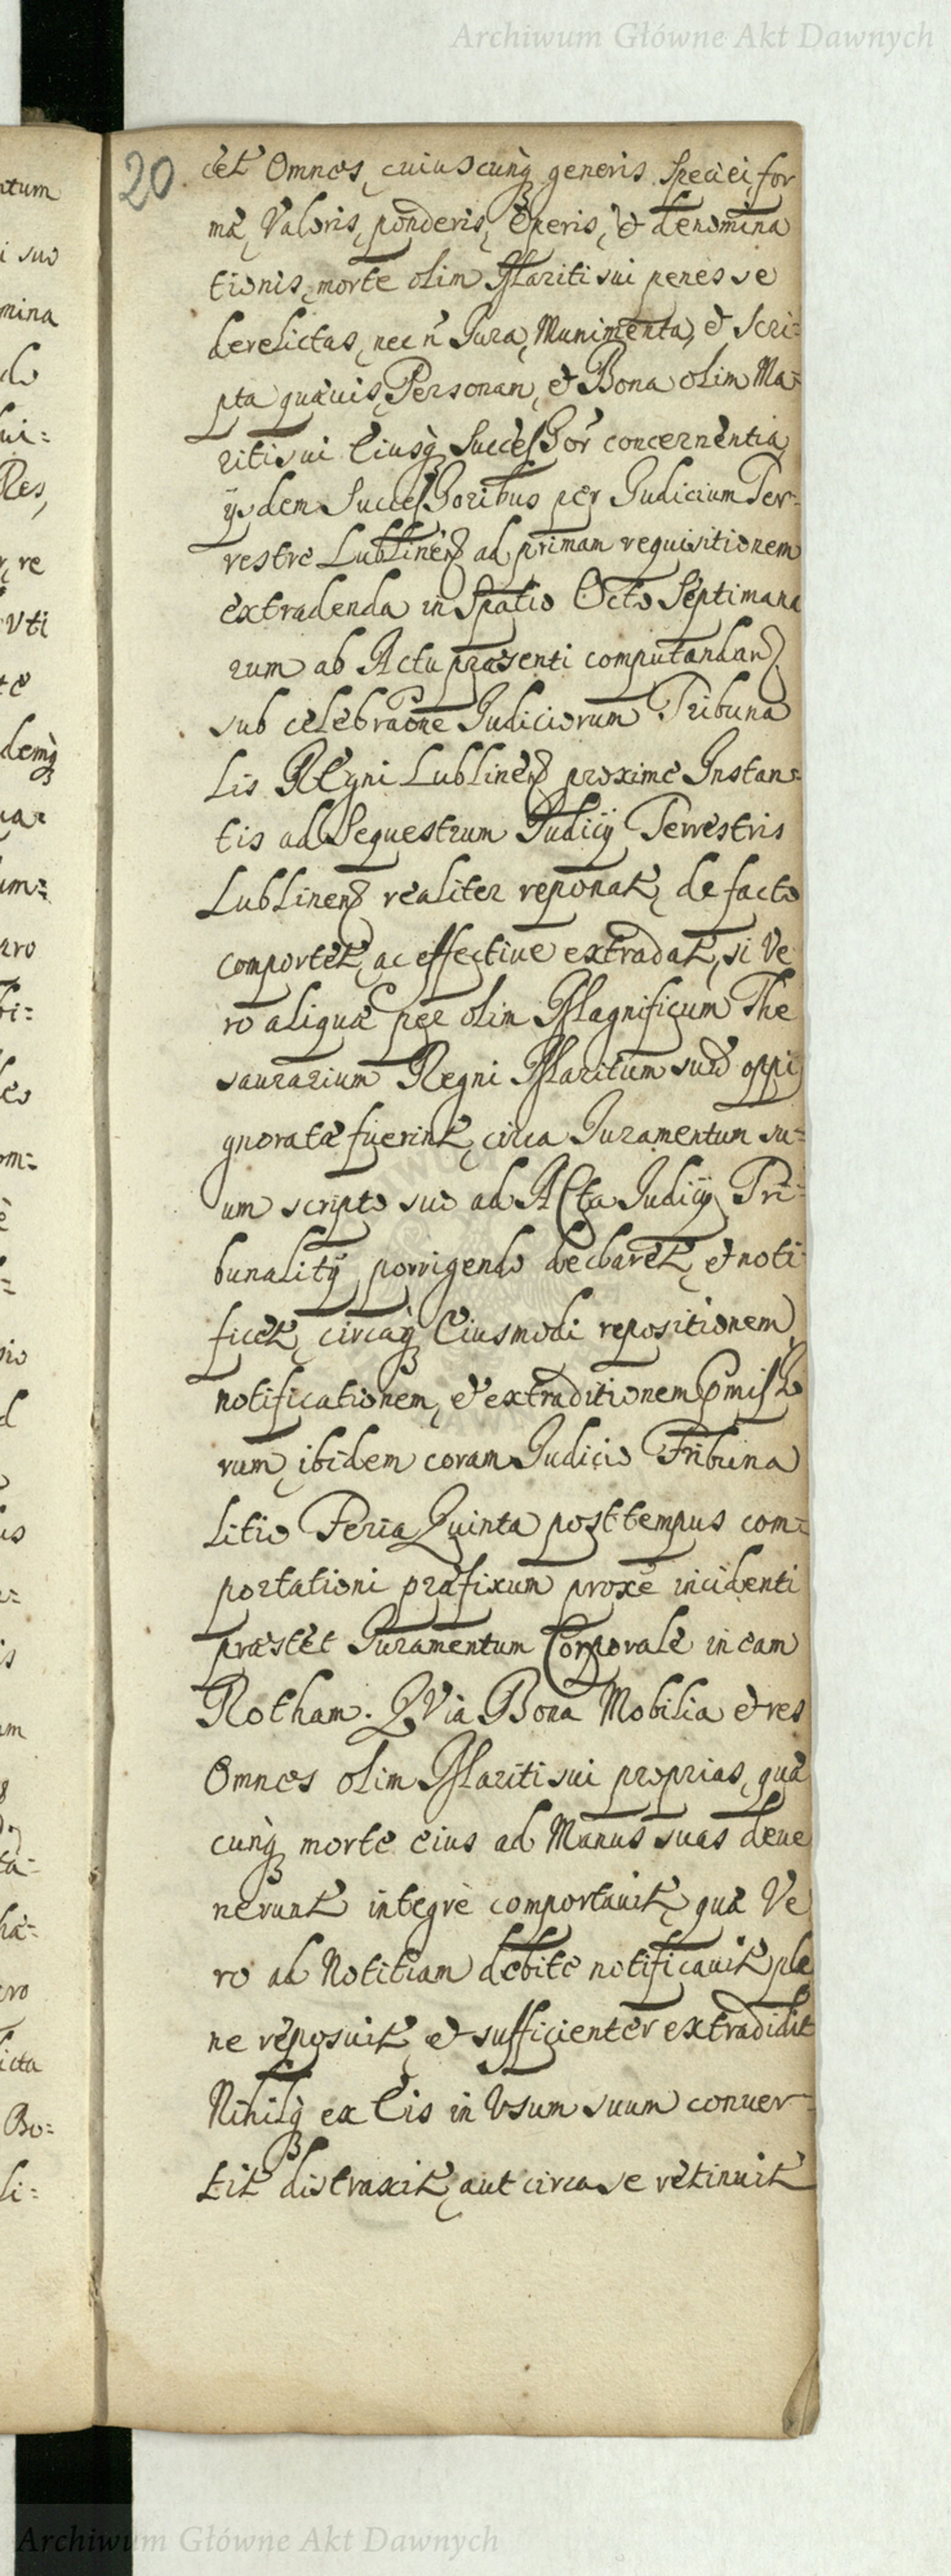 Archiwum Główne Akt Dawnych
20. cet Omnes, cuiuscunq generis Speciei, for
mæ, Valoris, ponderis, Operis, & denomina
tionis, morte olim Mariti sui penes se
derelictas, nec n Iura, Munimenta, & Scri:
pta quæuis, Personam, & Bona olim Ma:
riti sui Eiusq Successor concernentia
ijsdem Successoribus per Iudicium Ter:
restre Lublinen ad primam requisitionem
extradenda in Spatio Octo Septimana
rum ab Actu præsenti computandar
sub celebraone Iudiciorum Tribuna
lis Regni Lublinen proxime Instan:
tis ad Sequestrum Iudicij Terrestris
Lublinen realiter reponat, de facto
comportet, ac effectiue extradat, si Ve
ro aliquæ per olim Magnificum The
saurarium Regni Maritum suũ oppi
gnoratæ fuerint, circa Iuramentum su:
um scripto suo ad Acta Iudicij Tri:
bunalitij porrigendo declaret, et noti
ficet, circaq Eiusmodi repositionem
notificationem, & extraditionem Pmisso
rum, ibidem coram Iudicio Tribuna
litio Feria Quinta post tempus com:
portationi præfixum proxe incidenti
præstet Iuramentum Corporale in eam
Rotham. QVia Bona Mobilia et res
Omnes olim Mariti sui proprias, quæ
cunq morte eius ad Manus suas deue
nerunt integre comportauit, quæ Ve
ro ad Notitiam debite notificauit, ple
ne reposuit, & sufficienter extradidit
Nihilq ex Eis in Vsum suum conuer:
tit distraxit, aut circa se retinuit
Archiwum Główne Akt Dawnych